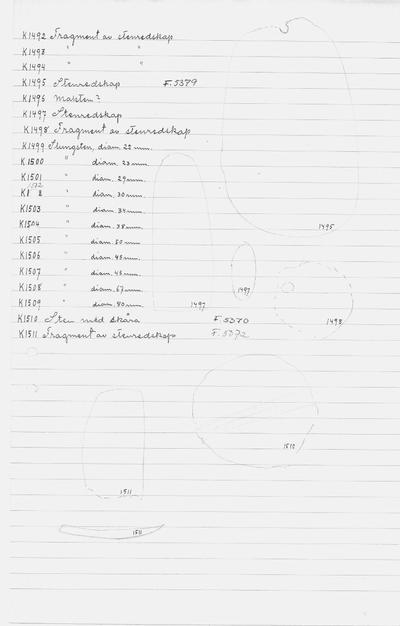 5
K1492 Fragment av stenredskap
K1493 " "
K1494 " "
K1495 Stenredskap F.5379
K1496 Malsten?
K1497 Stenredskap
K1498 Fragment av stenredskap
K1499 Slungsten, diam. 22 mm.
K1500 " diam. 23 mm.
K1501 " diam. 29 mm.
K1502 " diam. 30 mm.
K1503 " diam. 34 mm.
K1504 " diam. 38 mm.
K1505 " diam. 50 mm.
K1506 " diam. 45 mm.
K1507 " diam. 45 mm.
K1508 " diam. 67 mm.
K1509 " diam. 40 mm.
K1510 Sten med skåra F.5370
K1511 Fragment av stenredskap F.5372
1495
1497
1497
1498
1510
1511
1511